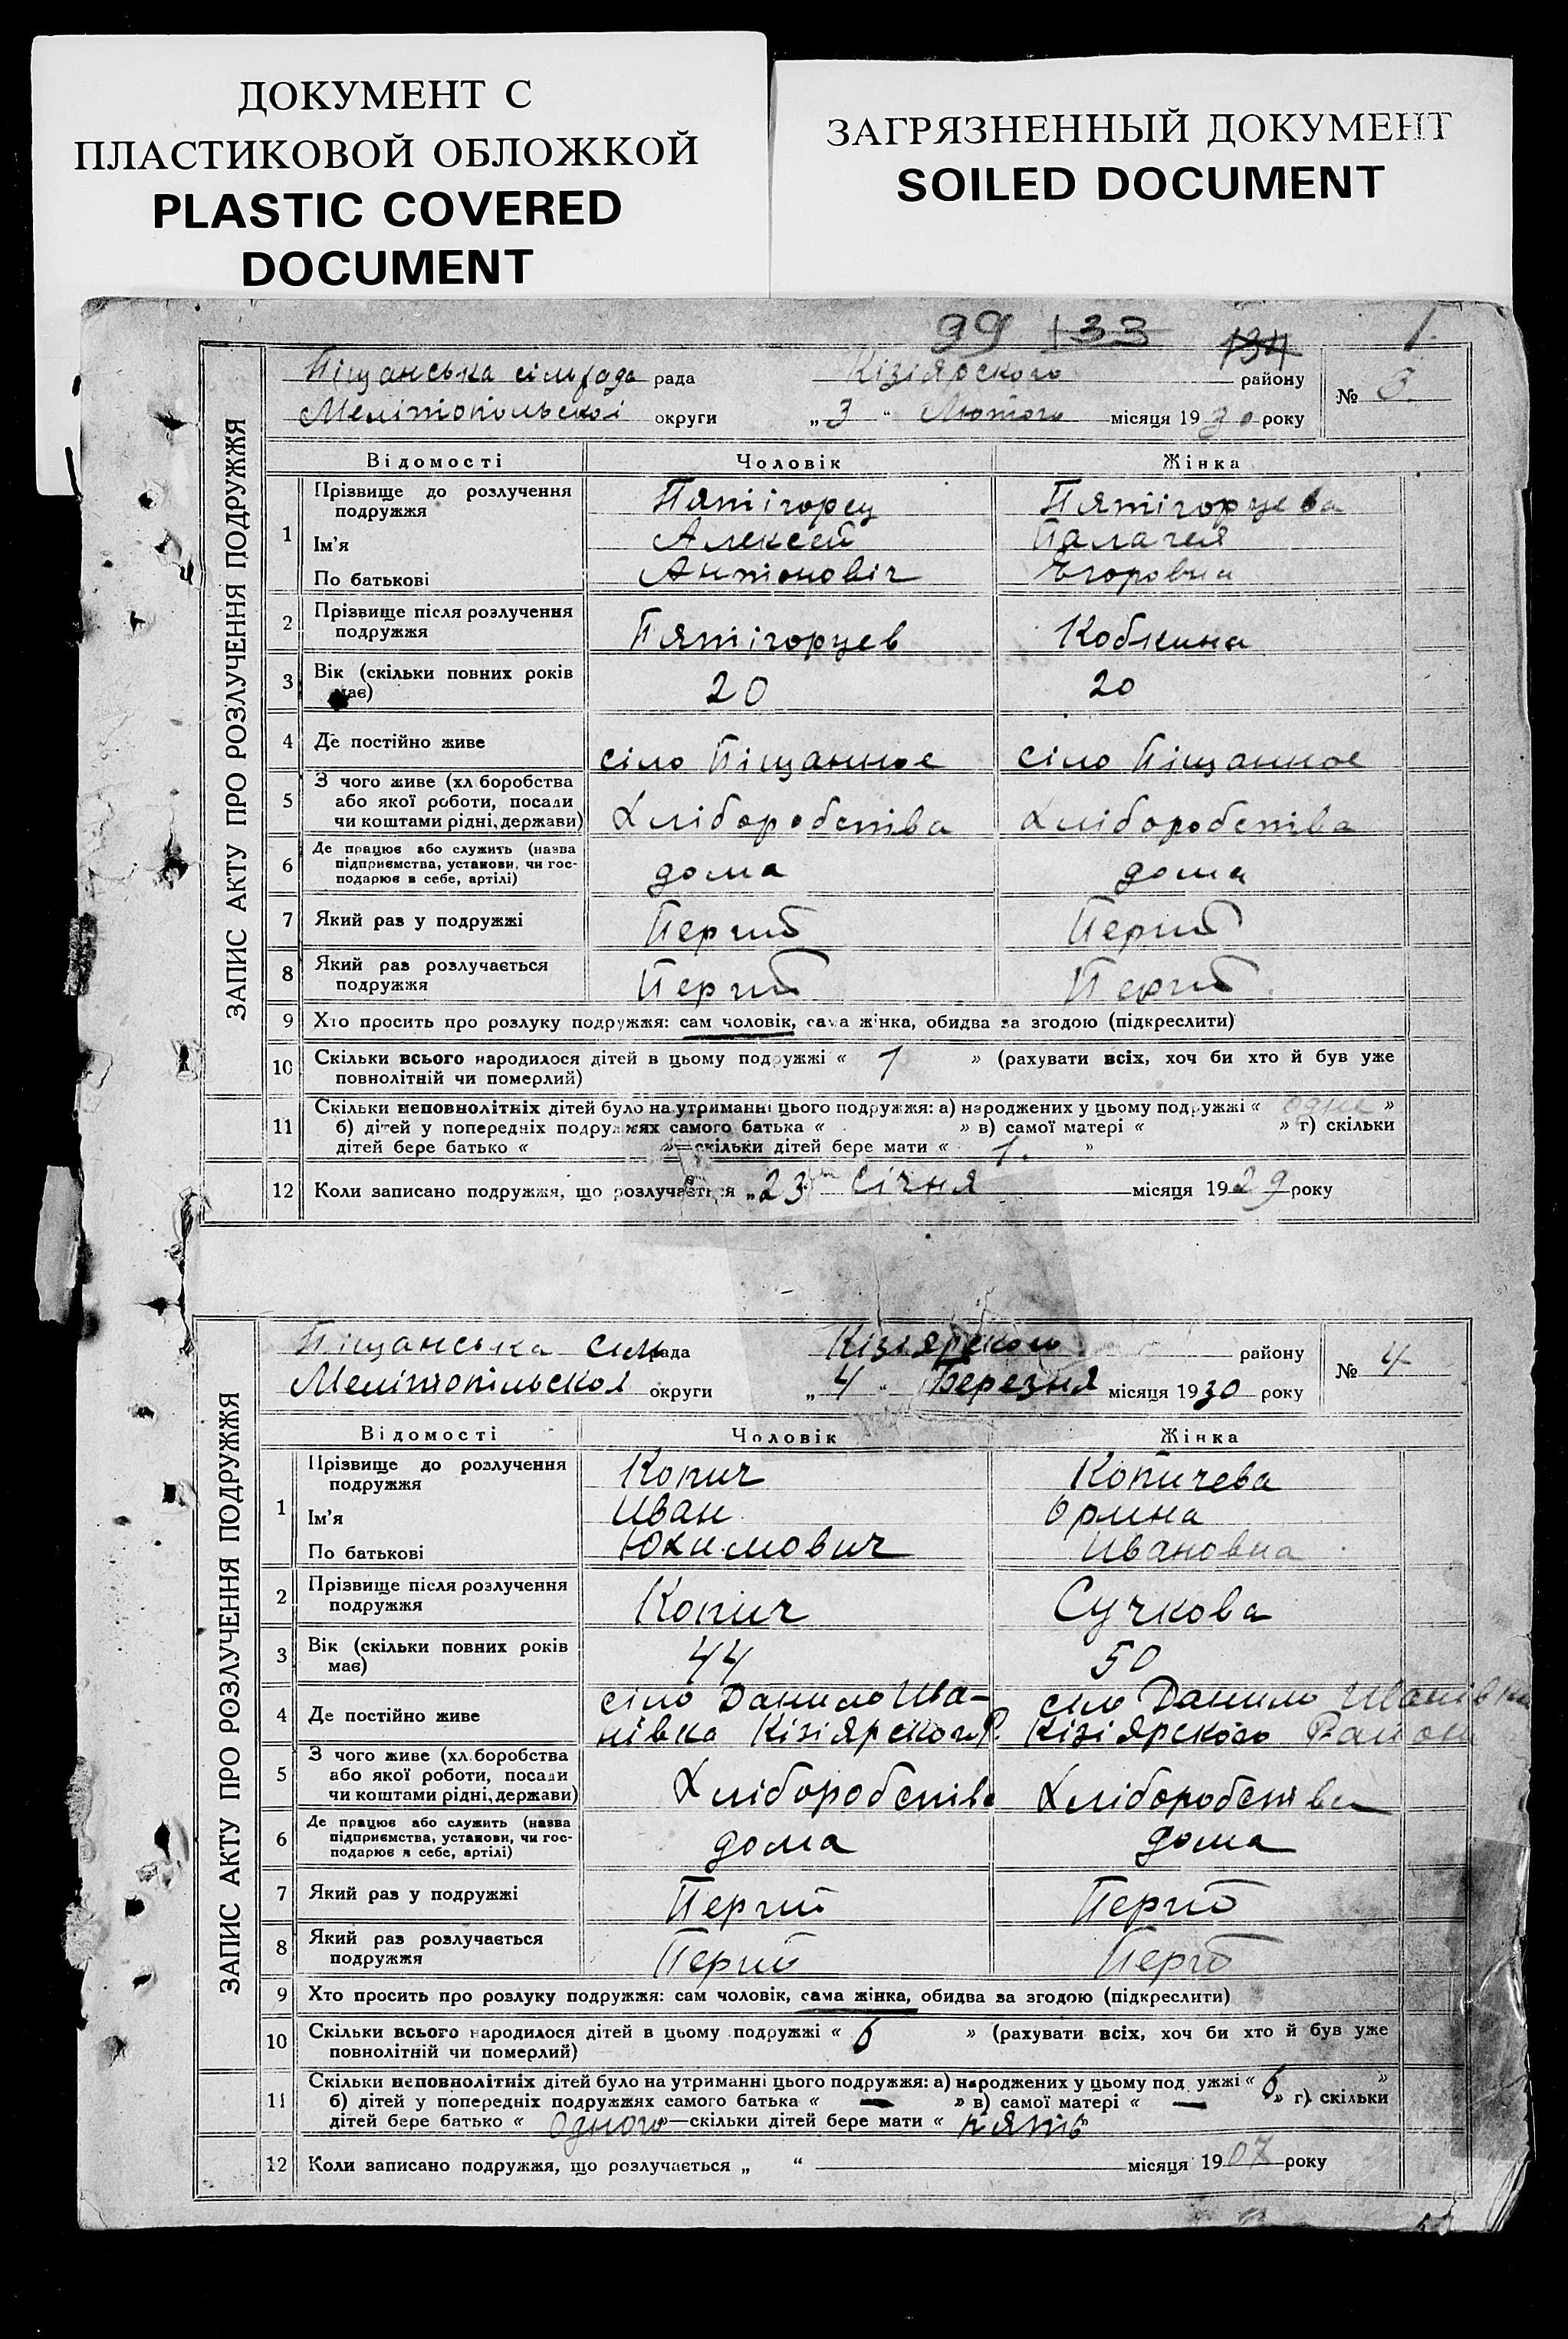 ДОКУМЕНТ С
ПЛАСТИКОВОЙ ОБЛОЖКОЙ
PLASTIC COVERED
DOCUMENT
ЗАГРЯЗНЕННЫЙ ДОКУМЕНТ
SOILED DOCUMENT
99 133 134 1.
ЗАПИС АКТУ ПРО РОЗЛУЧЕННЯ ПОДРУЖЖЯ
Піщанська сільрада рада Кізіярского району № 3.
Мелітопольскоі округи „3“ Лютого місяця 1930 року
Відомості Чоловік Жінка
1 Прізвище до розлучення подружжя Пятігорец Пятігорцева
Ім'я Алексей Палагея
По батькові Антіоновіч Егоровна
2 Прізвище після розлучення подружжя Пятігорцев Кобкина
3 Вік (скільки повних років має) 20 20
4 Де постійно живе сіло Піщанное сіло Піщанное
5 З чого живе (хл.боробства
або якої роботи, посади
чи коштами рідні, держави) Хліборобства Хліборобства
6 Де працює або служить (назва
підприємства, установи, чи гос-
подарює в себе, артілі) дома дома
7 Який раз у подружжі Перший Перший
8 Який раз розлучається
подружжя Перший Перший
9 Хто просить про розлуку подружжя: сам чоловік, сама жінка, обидва за згодою (підкреслити)
10 Скільки всього народилося дітей в цьому подружжі « 1 » (рахувати всіх, хоч би хто й був уже
повнолітній чи померлий)
11 Скільки неповнолітніх дітей було на утриманні цього подружжя: а) народжених у цьому подружжі « одне »
б) дітей у попередніх подружжях самого батька « » в) самої матері « » г) скільки
дітей бере батько « »—скільки дітей бере мати « 1. »
12 Коли записано подружжя, що розлучається „23“ січня місяця 1929 року
ЗАПИС АКТУ ПРО РОЗЛУЧЕННЯ ПОДРУЖЖЯ
Піщанська сіл рада Кізіярского району № 4
Мелітопільскоя округи „4“ Березня місяця 1930 року
Відомості Чоловік Жінка
1 Прізвище до розлучення
подружжя Копич Копичева
Ім'я Иван Орина
По батькові Юхимович Ивановна
2 Прізвище після розлучення
подружжя Копич Сучкова
3 Вік (скільки повних років
має) 44 50
4 Де постійно живе сіло Данило Ива- сіло Данило Иванівка
нівка Кізіярского Р. Кізіярского Район
5 З чого живе (хл.боробства
або якої роботи, посади
чи коштами рідні, держави) Хліборобства Хліборобства
6 Де працює або служить (назва
підприємства, установи, чи гос-
подарює в себе, артілі) дома дома
7 Який раз у подружжі Перший Перший
8 Який раз розлучається
подружжя Перший Перший
9 Хто просить про розлуку подружжя: сам чоловік, сама жінка, обидва за згодою (підкреслити)
10 Скільки всього народилося дітей в цьому подружжі « 6 » (рахувати всіх, хоч би хто й був уже
повнолітній чи померлий)
11 Скільки неповнолітніх дітей було на утриманні цього подружжя: а) народжених у цьому подружжі « 6 »
б) дітей у попередніх подружжях самого батька « — » в) самої матері « — » г) скільки
дітей бере батько « одного »—скільки дітей бере мати « пять »
12 Коли записано подружжя, що розлучається „ “ місяця 1907 року